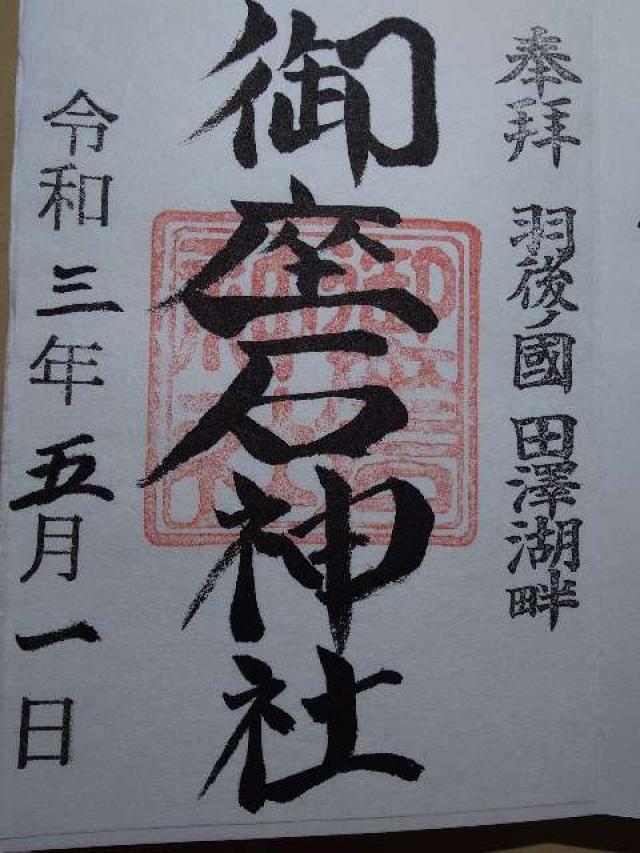 奉拝 羽後ノ國 田澤湖畔
御座石神社
令和三年五月一日